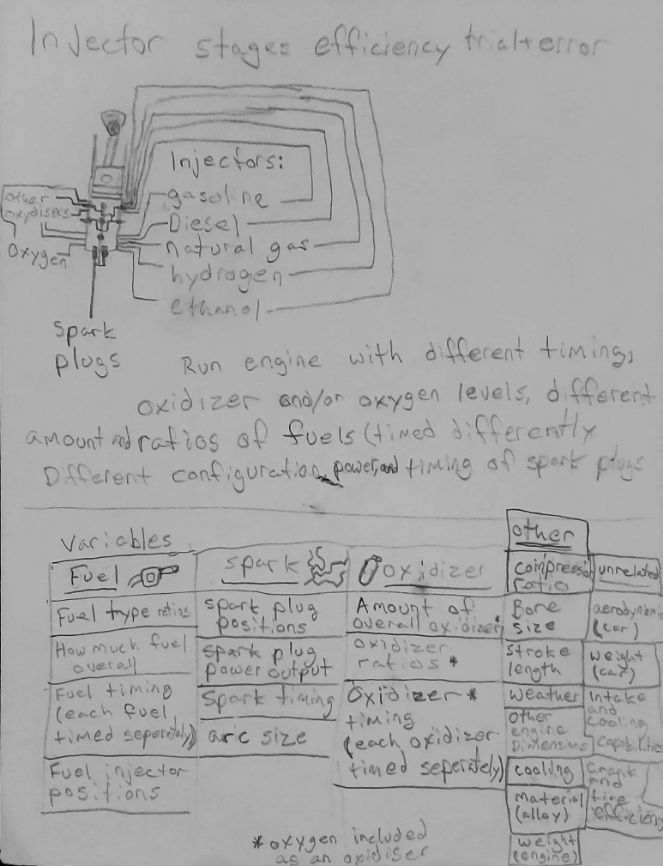 Injector stages efficiency trial+error
Injectors:
gasoline
Diesel
natural gas
hydrogen
ethanol
other
oxydisers
oxygen
spark
plugs
Run engine with different timing,
oxidizer and/or oxygen levels, different
amount and ratios of fuels (timed differently
Different configuration, power, and timing of spark plugs
Variables
Fuel
Fuel type ratios
How much fuel
overall
Fuel timing
(each fuel
timed seperately)
Fuel injector
positions
spark
spark plug
positions
spark plug
power output
Spark timing
arc size
oxidizer
Amount of
overall oxidizer
oxidizer
ratios *
Oxidizer *
timing
(each oxidizer
timed seperately)
other
compression
ratio
Bore
size
Stroke
length
weather
other
engine
Dimensions
cooling
Material
(alloy)
weight
(engine)
unrelated
aerodynamics
(car)
weight
(car)
Intake
and
cooling
capabilities
Crank
and
tire
efficiency
* oxygen included
as an oxidiser